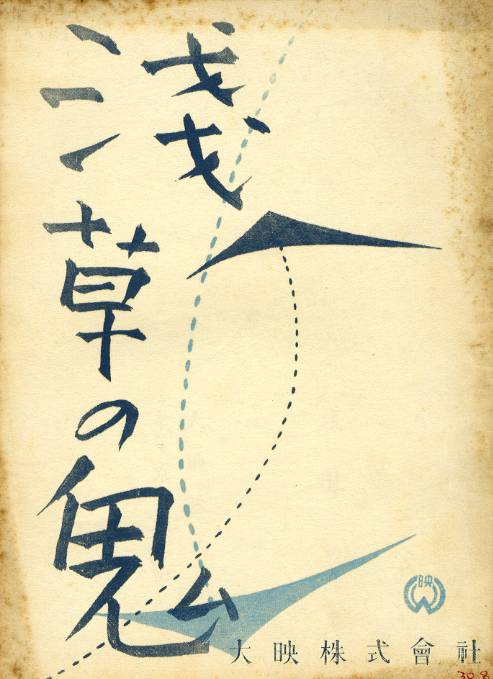 淺草の鬼
映
大映株式會社
30.8